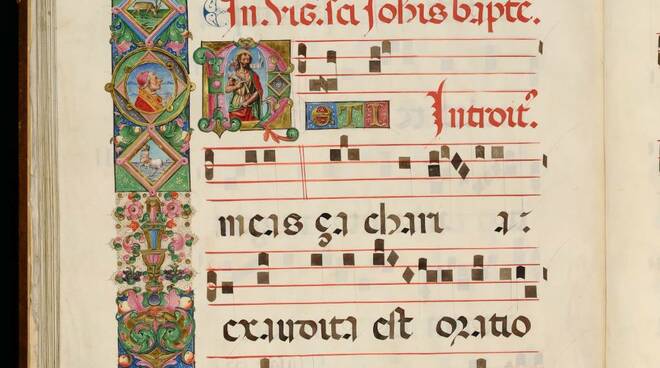 In Vig. sci Johis bapte.
NETI Introit⁹.
meas ça chari a:
exaudita est oratio